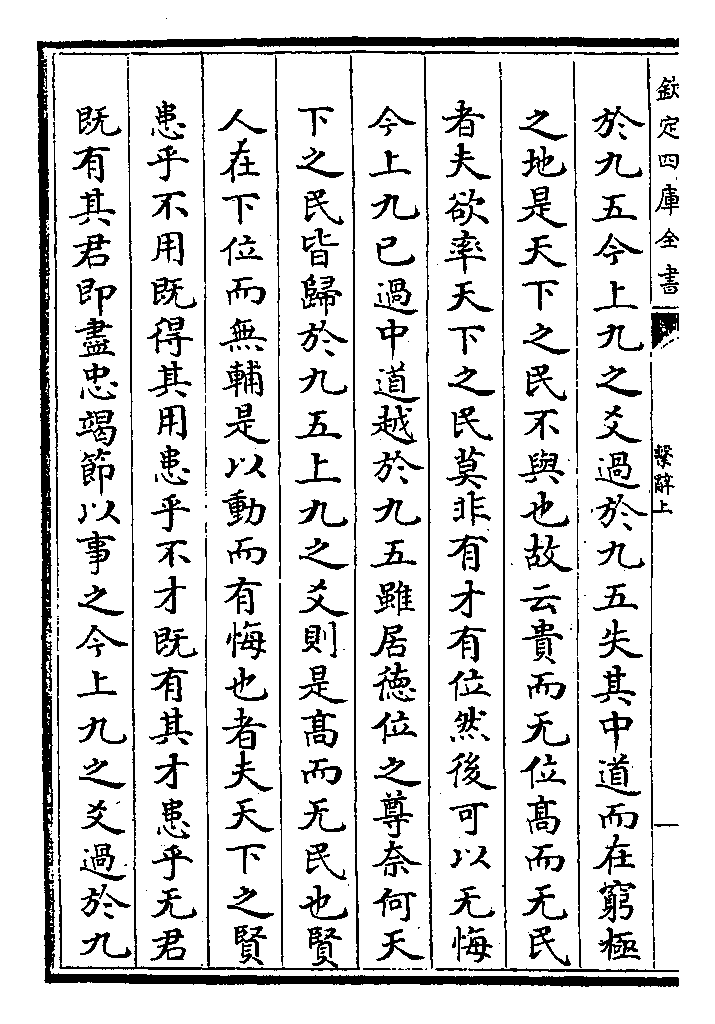 欽定四庫全書
繫辭上
於九五今上九之爻過於九五失其中道而在窮極
之地是天下之民不與也故云貴而无位髙而无民
者夫欲率天下之民莫非有才有位然後可以无悔
今上九已過中道越於九五雖居徳位之尊奈何天
下之民皆歸於九五上九之爻則是髙而无民也賢
人在下位而無輔是以動而有悔也者夫天下之賢
患乎不用既得其用患乎不才既有其才患乎无君
既有其君即盡忠竭節以事之今上九之爻過於九